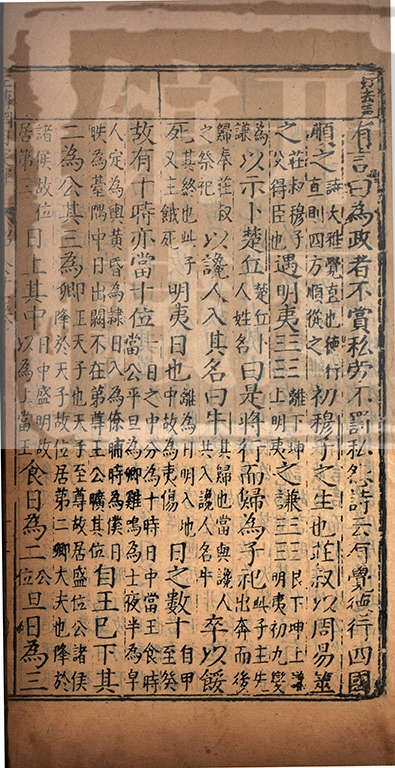 有言曰為政者不賞私勞不罰私怨詩云有覺德行四國
順之詩大雅覺直也德行直則四方順從之初穆子之生也莊叔以周易筮
之莊叔穆子父得臣也遇明夷離下坤上明夷之謙艮下坤上謙明夷初九變
為謙以示卜楚丘楚丘卜人姓名曰是將行而歸為子祀子主先祀出奔而後
歸奉莊叔之祭祀以讒人入其名曰牛其歸也當與讒人共入讒人名牛卒以餒
死其終也此子又主餓死明夷日也離為日明入地中故為夷傷日之數十自甲至癸
故有十時亦當十位一日之中分為十時日中當王食時當公平旦為卿雞鳴為士夜半為皁
人定為輿黃昏為隸日入為僚晡時為僕日昳為臺隅中日出闕不在第尊王公曠其位自王巳下其
二為公其三為卿正天子也天子至尊故居盛位公諸侯降於天子故位居第二卿大夫也降於
諸侯故位居第三日上其中日中盛明故以為上當王食日為二公位旦日為三